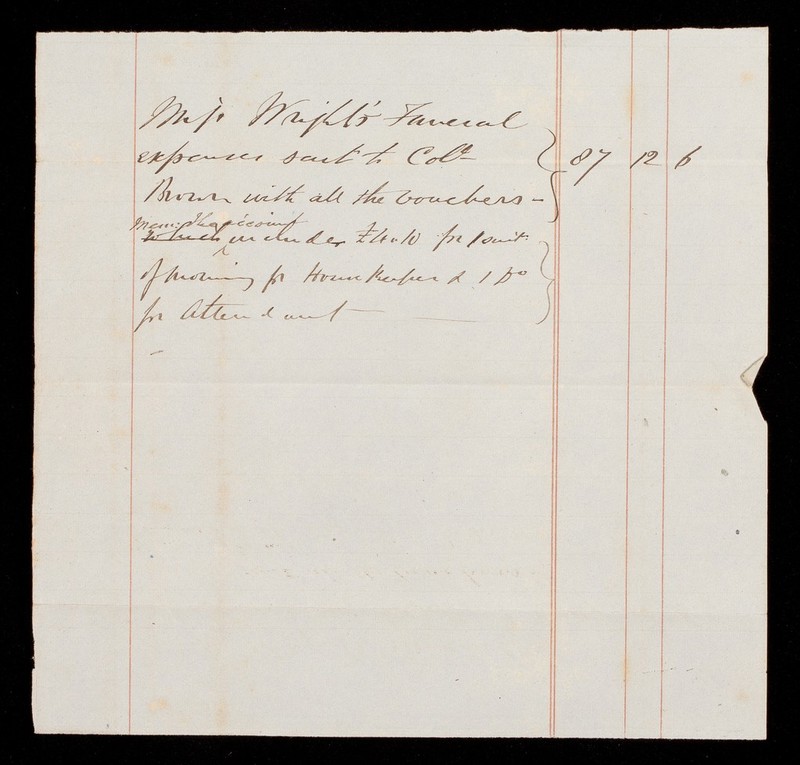 Miss Wright's Funeral
expenses sent to Colt
Brown with all the vouchers - 87 12 6
Mem: The account
which includes £4.10 for 1 suit
of mourning for Housekeeper & 1 Do
for Attendant